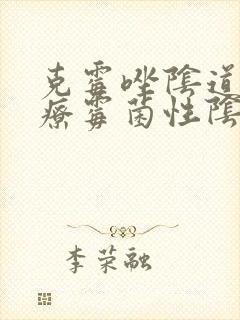 克霉唑陰道
療霉菌性陰
李荣融